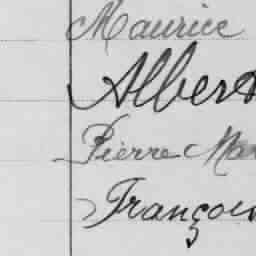 Maurice
Albert
Pierre Mar
François